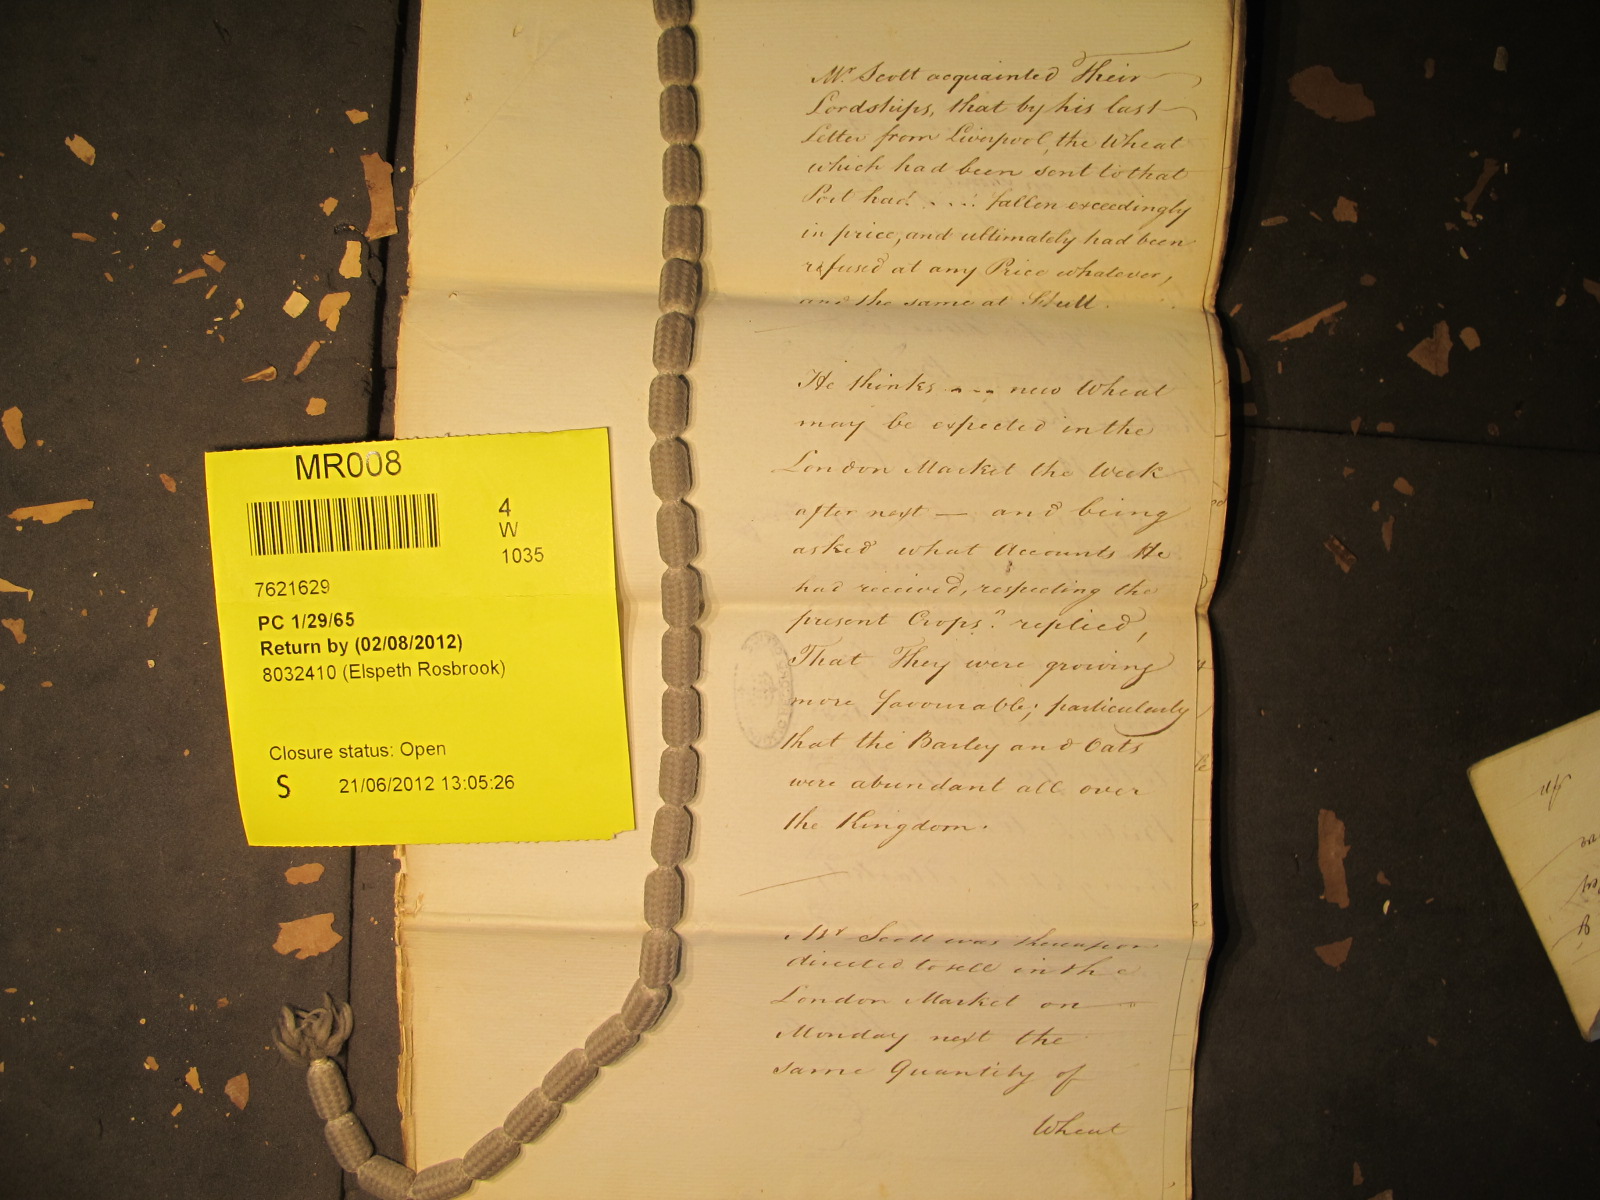 MR008
4
W
1035
7621629
PC 1/29/65
Return by (02/08/2012)
8032410 (Elspeth Rosbrook)
Closure status: Open
S 21/06/2012 13:05:26
Mr. Scott acquainted Their
Lordships, that by his last
Letter from Liverpool, the Wheat
which had been sent to that
Port had . . . . fallen exceedingly
in price, and ultimately had been
refused at any Price whatever,
and the same at Hull.
He thinks - - - new Wheat
may be expected in the
London Market the Week
after next — and being
asked what Accounts He
had received, respecting the
present Crops? replied,
That They were growing
more favourable; particularly
that the Barley and Oats
were abundant all over
the Kingdom.
Mr Scott was thereupon
directed to sell in the
London Market on
Monday next the
same Quantity of
Wheat